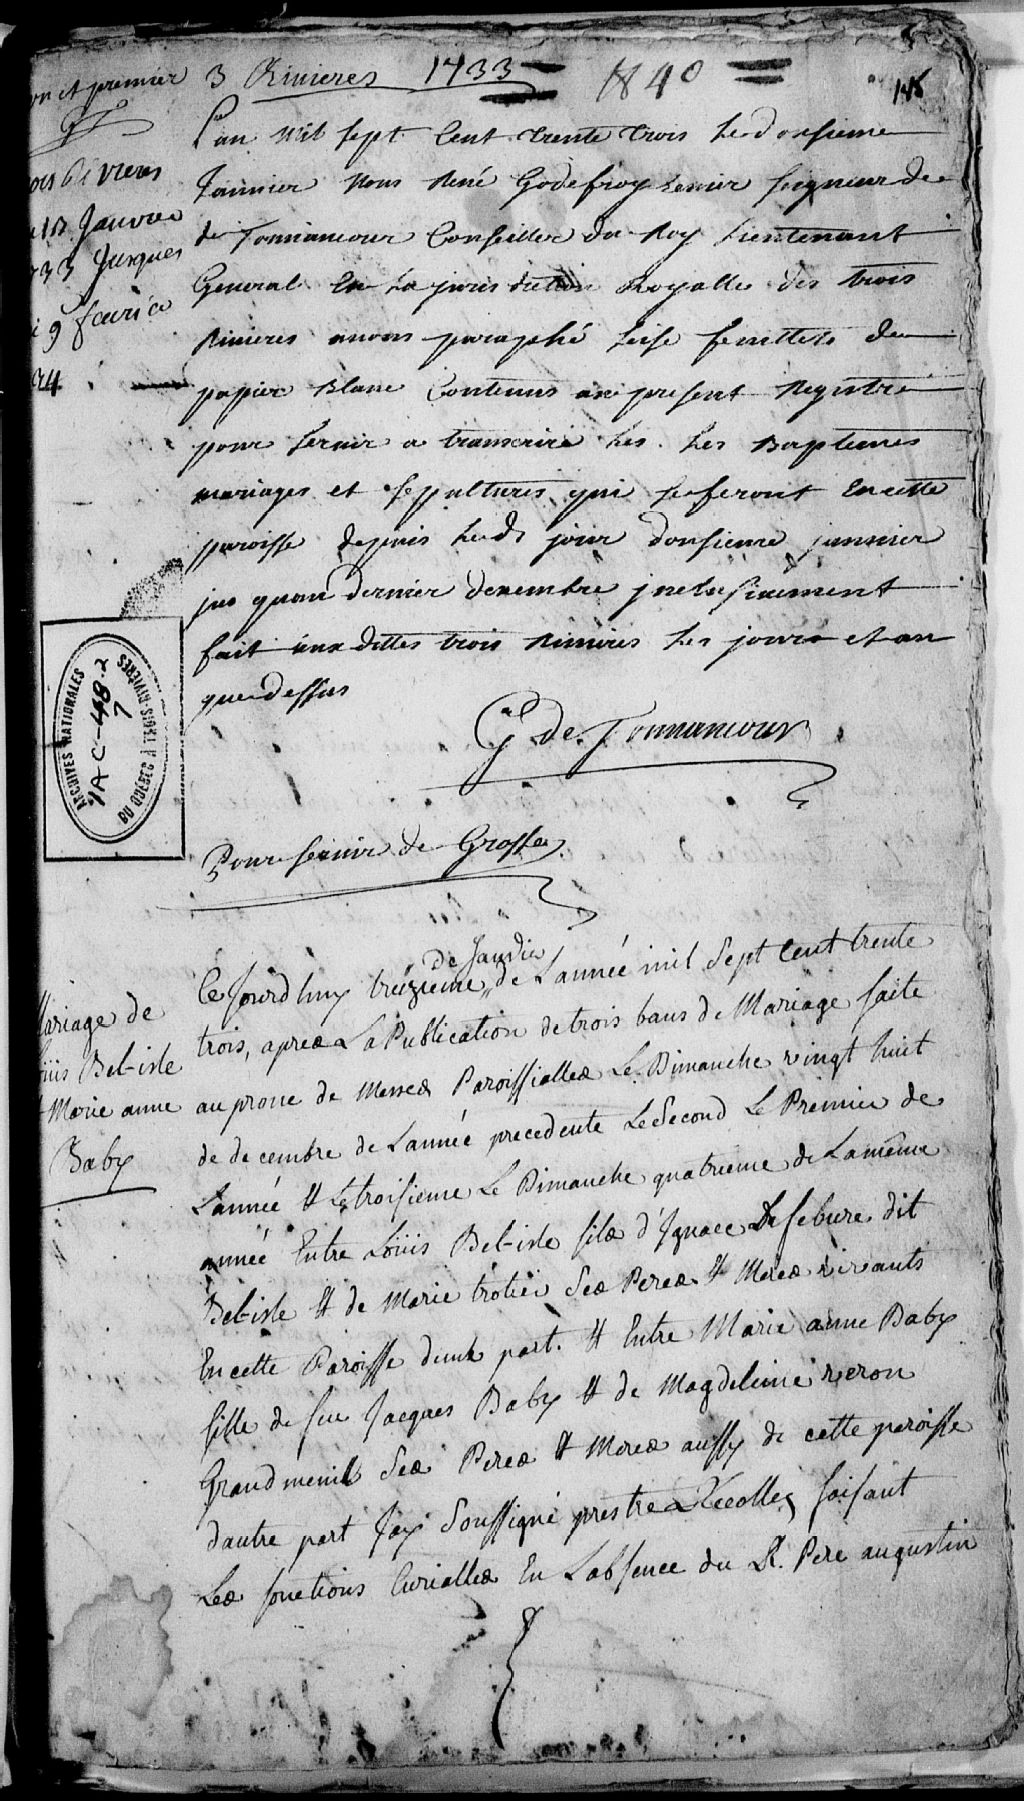 on et premier
3 Rivieres 1733
1840
145
L'an Mil sept Cent trente trois Le donsieme
Janvier Nous René Godefroy seigneur de
de Tonnancour Conseiller du Roy Lieutenant
General En La jurisdiction Royalle des trois
Rivieres avons paraphé seise feuillets de
papier Blanc Contenus au present Registre
pour servir a transcrire Les Les Baptemes
mariages et sepultures qui se feront En cette
paroisse depuis Led. jour donsieme janvier
jus quau dernier decembre jnclusivement
fait aux dittes trois Rivieres Les jours et an
que dessus
G de Tonnancour
ois Rivieres
13 Janvier
733 Jusques
9 fevrier
34
ARCHIVES NATIONALES
1AC-48-2
7
DU QUÉBEC À TROIS-RIVIÈRES
Pour servir de Grosse
Mariage de
Loüis Bel-isle
et Marie anne
Baby
Ce Jourd huy treizieme de Janvier de Lannée mil Sept Cent trente
trois, apres La Publication de trois bans de Mariage faite
au prone de Messes Paroissialles Le Dimanche vingt huit
de decembre de Lannée precedente Le Second Le Premier de
Lannée et Le troisieme Le Dimanche quatrieme de La même
année Entre Loüis Bel-isle fils d'Ignace Lefebure dit
Bel-isle et de Marie trotier Ses Peres et Meres vivants
En cette Paroisse dune part. et Entre Marie anne Baby
fille de feu Jacques Baby et de Magdeleine veron
Grandmenil Ses Peres et Meres aussy de cette paroisse
dautre part Jay Soussigné prestre Recollet faisant
Les fonctions Curialles En Labsence du R. Pere augustin